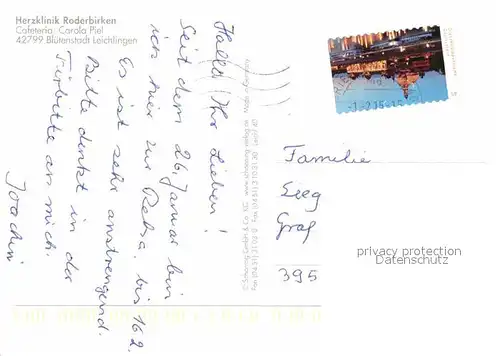 Herzklinik Roderbirken
Cafeteria Carola Piel
42799 Blütenstadt Leichlingen
Hallo Ihr Lieben!
Seit dem 26. Januar bin
ich hier zur Reha, bis 16.2.
Es ist sehr anstrengend.
Bitte denkt in der
Fürbitte an mich.
Joachim
Schöning GmbH & Co. KG
Made in Germany
Familie
Seeg
Graf
395
privacy protection
Datenschutz